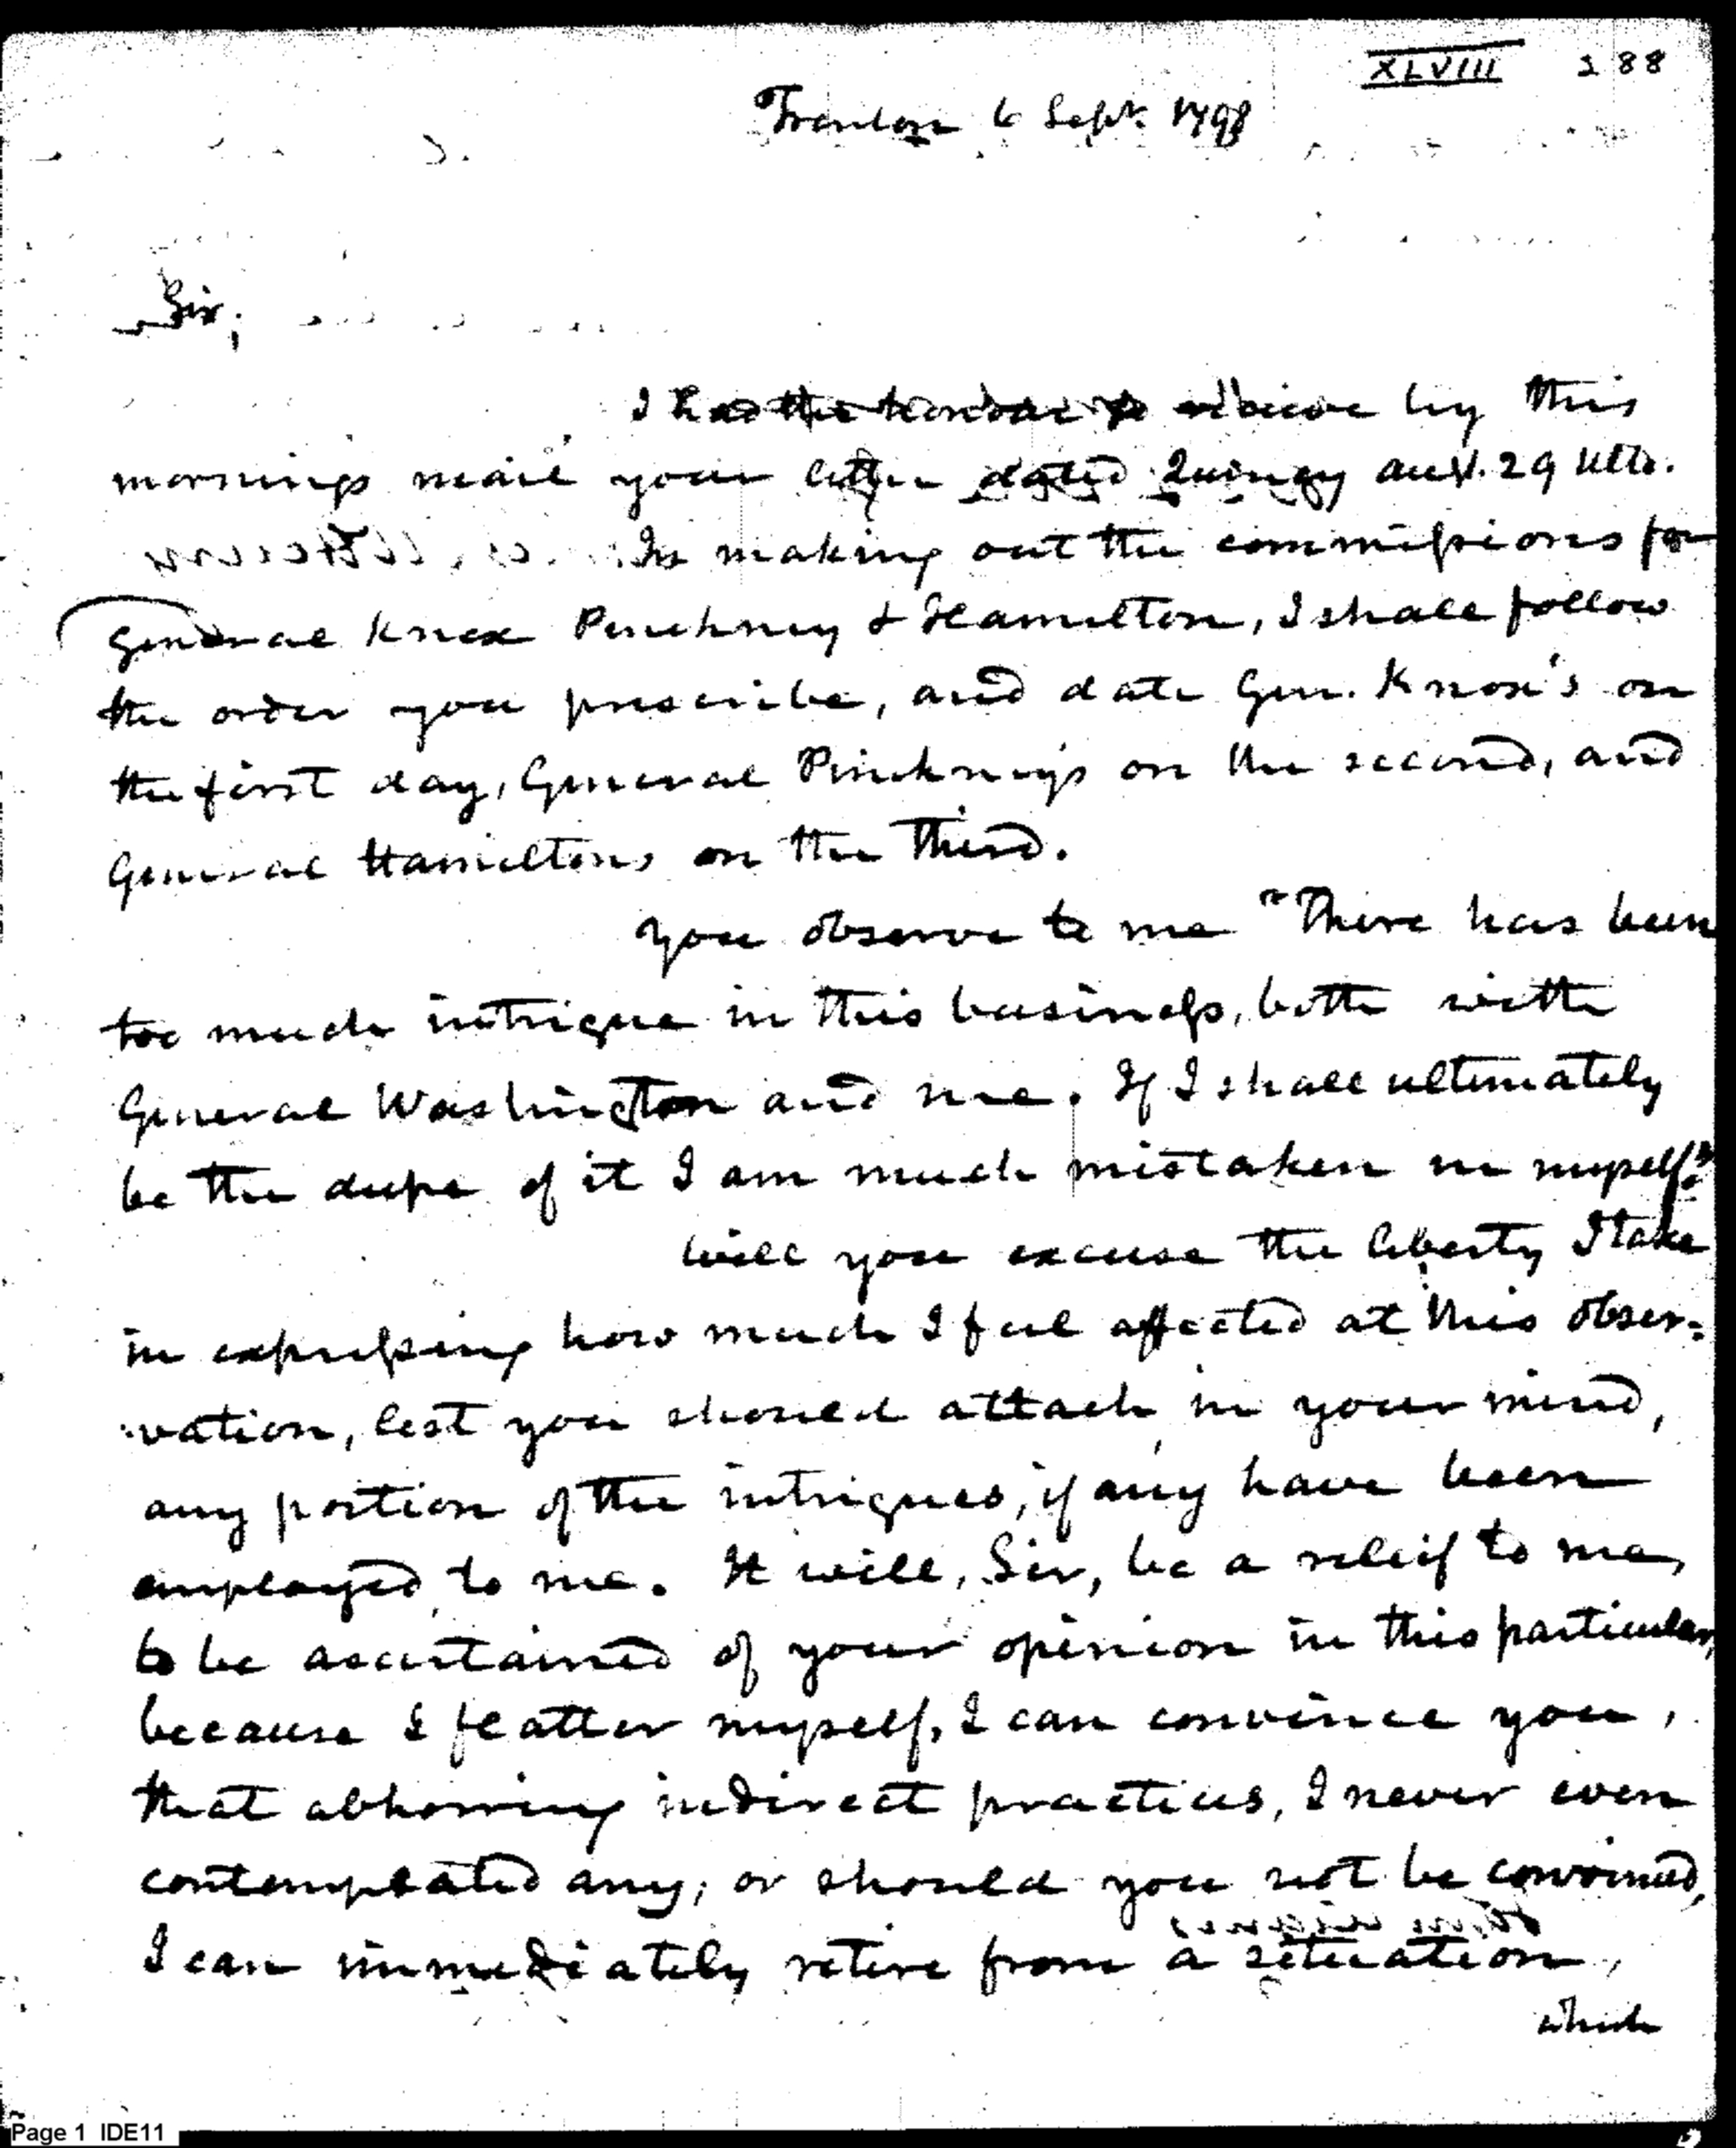 XLVIII 188
Trenton 6 Sept. 1798
Sir,
I had the honour to receive by this
mornings mail your letter dated Quincy aust. 29 Ulto.
In making out the commissions for
General Knox Pinckney & Hamilton, I shall follow
the order you prescribe, and date Gen. Knox's on
the first day, General Pinckney's on the second, and
General Hamiltons on the third.
You observe to me "There has been
too much intrigue in this business, both with
General Washington and me. If I shall ultimately
be the dupe of it I am much mistaken in myself."
Will you excuse the liberty I take
in expressing how much I feel affected at this obser=
=vation, lest you should attach in your mind,
any portion of the intrigues, if any have been
employed to me. It will, Sir, be a relief to me,
to be ascertained of your opinion in this particular,
because I flatter myself, I can convince you,
that abhorring indirect practices, I never even
contemplated any; or should you not be convinced,
I can immediately retire from a situation,
which
Page 1 IDE11